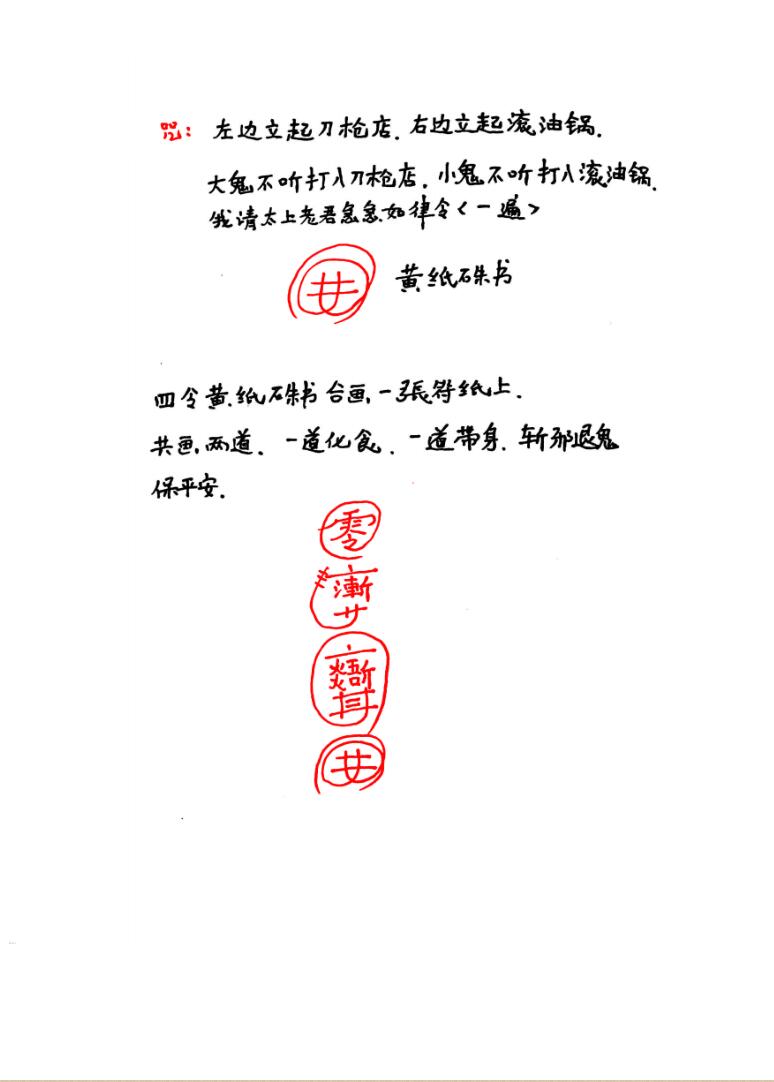 咒: 左边立起刀枪店.右边立起滚油锅.
大鬼不听打入刀枪店.小鬼不听打入滚油锅.
我请太上老君急急如律令<一遍>
黄纸硃书
四令黄纸硃书合画,一張符纸上.
共画,两道.一道化食.一道带身.斩邪退鬼
保平安.